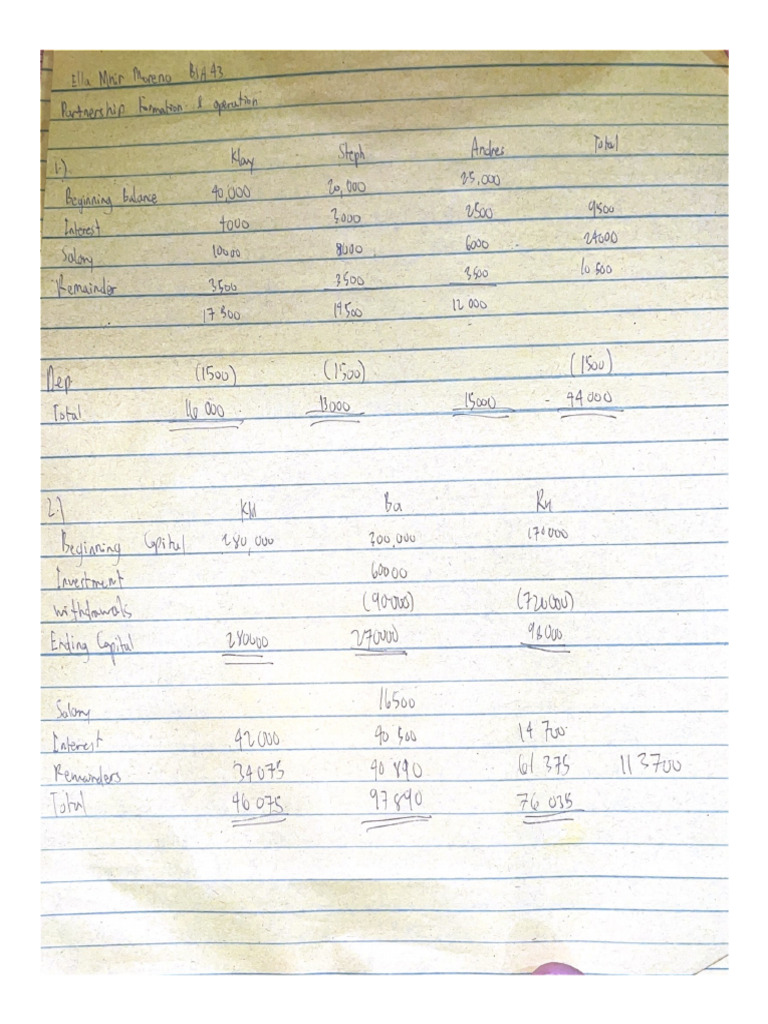 Ella Mnir Moreno B1A43
Partnership Formation & operation
1.) Klay Steph Andrei Total
Beginning balance 40,000 20,000 25,000
Interest 4000 3000 2500 9500
Salary 10000 8000 6000 24000
Remainder 3500 3500 3500 10 500
17 300 14 500 12 000
Dep (1500) (1500) (1500)
Total 16 000 13000 15000 44 000
2.) Ba
Beginning Capital 280,000 300,000 170000
Investment 60000
withdrawals (90000) (720000)
Ending Capital 280000 270000 98000
Salary 16500
Interest 42000 40 500 14 700
Remainders 34075 40 890 61 375 113700
Total 46 075 97 890 76 035